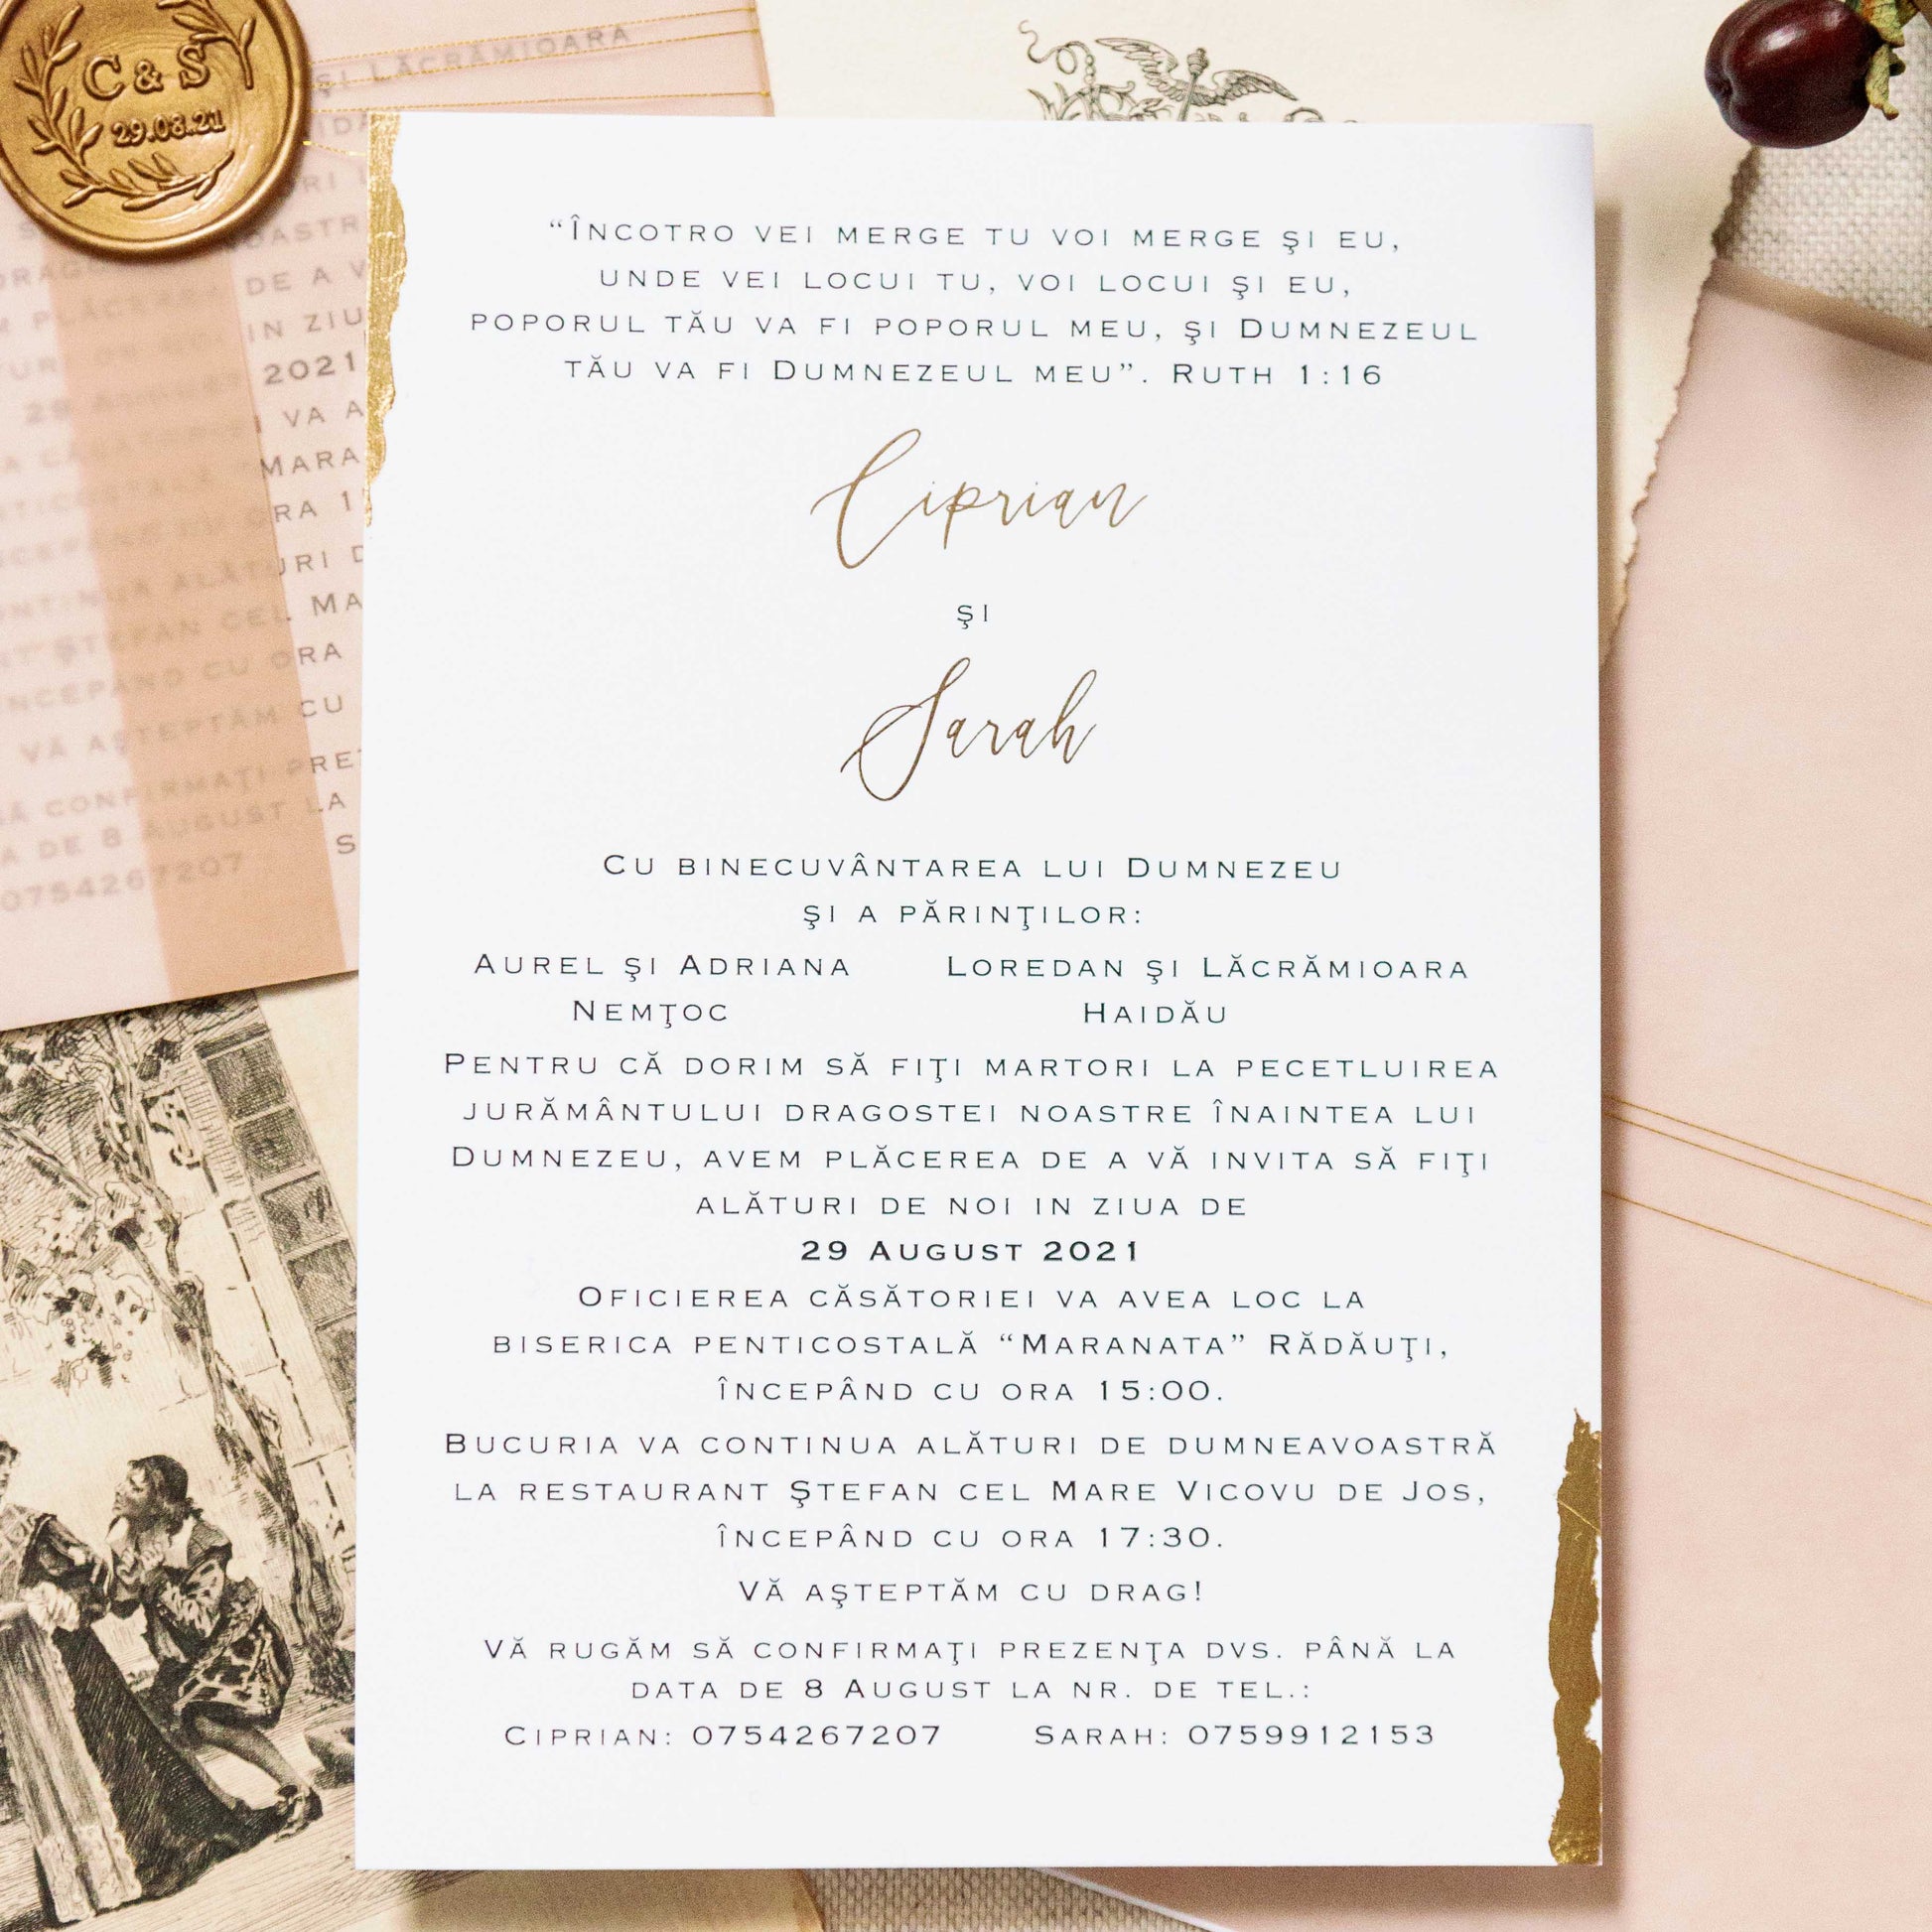 C & S
29.08.21
ŞI LĂCRĂMIOARA
DE A V
IN ZIU
2021
VA A
MARA
RA 1
ALĂTURI D
ŞTEFAN CEL MA
ÎNCEPÂND CU ORA
VĂ AŞTEPTĂM CU
SĂ CONFIRMAŢI PRE
A DE 8 AUGUST LA
0754267207 S
“ÎNCOTRO VEI MERGE TU VOI MERGE ŞI EU,
UNDE VEI LOCUI TU, VOI LOCUI ŞI EU,
POPORUL TĂU VA FI POPORUL MEU, ŞI DUMNEZEUL
TĂU VA FI DUMNEZEUL MEU”. RUTH 1:16
Ciprian
ŞI
Sarah
CU BINECUVÂNTAREA LUI DUMNEZEU
ŞI A PĂRINŢILOR:
AUREL ŞI ADRIANA LOREDAN ŞI LĂCRĂMIOARA
NEMŢOC HAIDĂU
PENTRU CĂ DORIM SĂ FIŢI MARTORI LA PECETLUIREA
JURĂMÂNTULUI DRAGOSTEI NOASTRE ÎNAINTEA LUI
DUMNEZEU, AVEM PLĂCEREA DE A VĂ INVITA SĂ FIŢI
ALĂTURI DE NOI IN ZIUA DE
29 AUGUST 2021
OFICIEREA CĂSĂTORIEI VA AVEA LOC LA
BISERICA PENTICOSTALĂ “MARANATA” RĂDĂUŢI,
ÎNCEPÂND CU ORA 15:00.
BUCURIA VA CONTINUA ALĂTURI DE DUMNEAVOASTRĂ
LA RESTAURANT ŞTEFAN CEL MARE VICOVU DE JOS,
ÎNCEPÂND CU ORA 17:30.
VĂ AŞTEPTĂM CU DRAG!
VĂ RUGĂM SĂ CONFIRMAŢI PREZENŢA DVS. PÂNĂ LA
DATA DE 8 AUGUST LA NR. DE TEL.:
CIPRIAN: 0754267207 SARAH: 0759912153